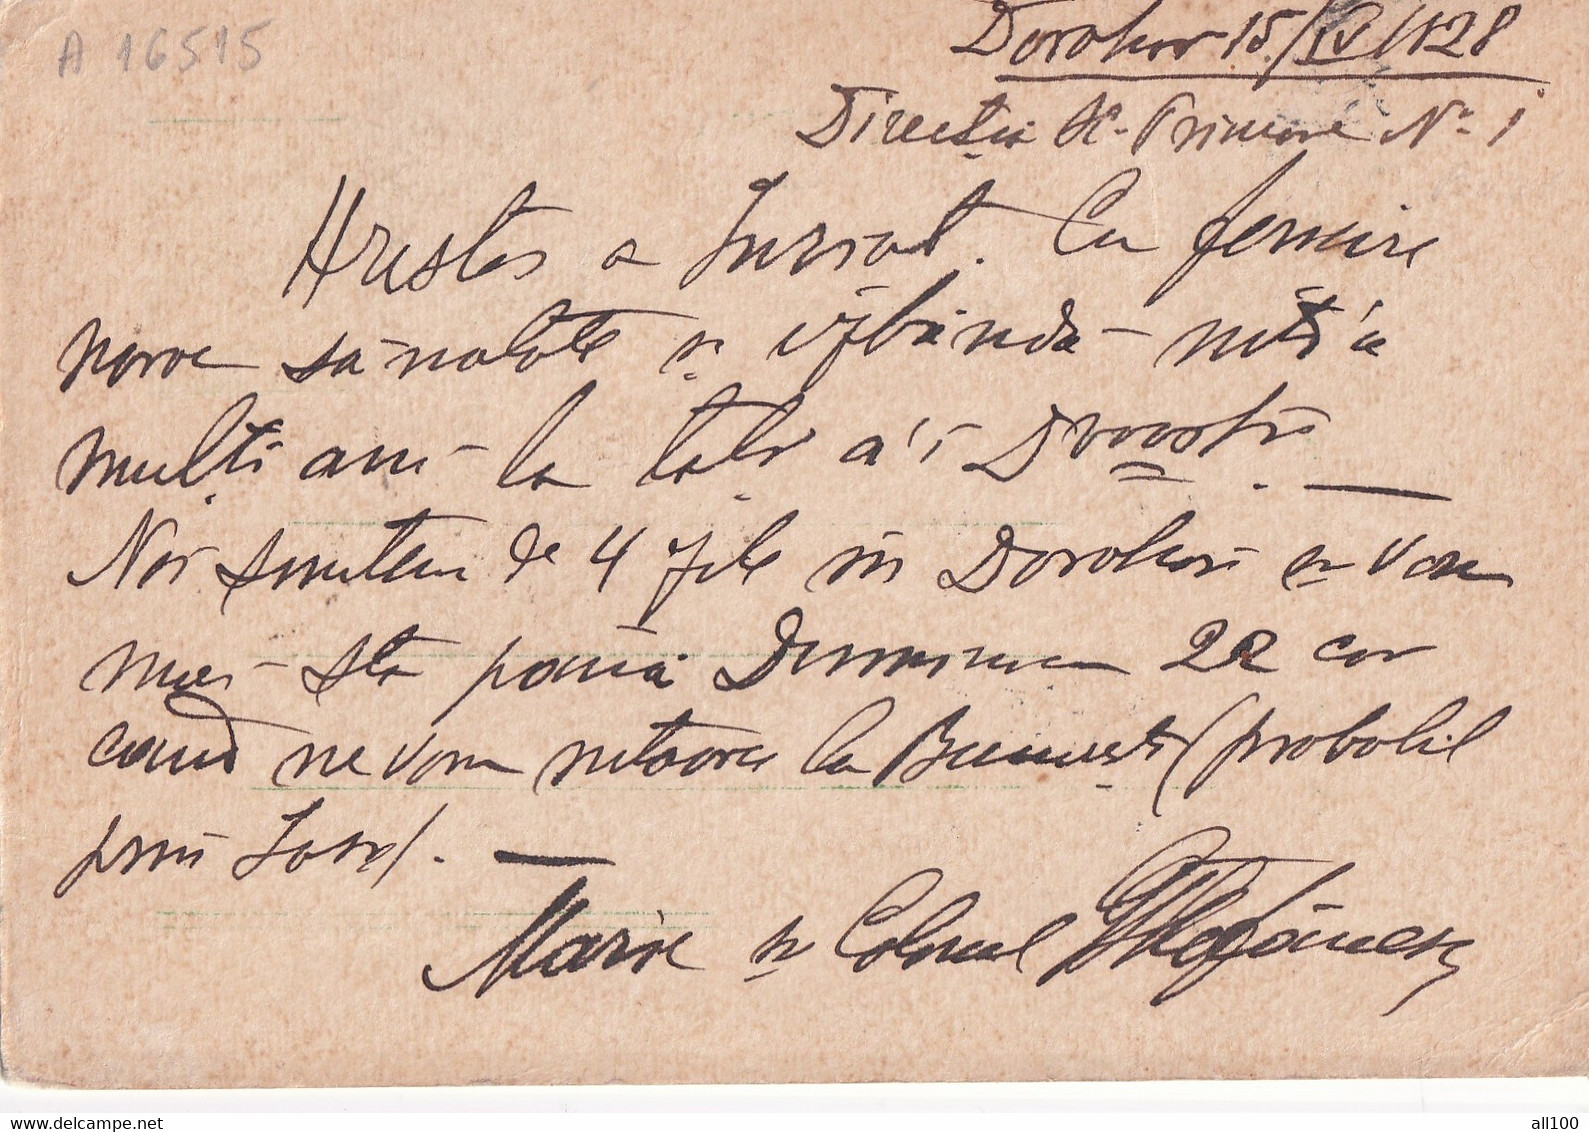 A 16515
Dorohoi 15/IV/1928
Direcția Șc. Primare No. 1
Hristos a Înviat. Cu fericire
noroc sănatate și izbândă întru
mulți ani la toți ai Dvoastră. —
Noi suntem de 4 zile în Dorohoi și vom
mai sta până Duminica 22 cor
când ne vom întoarce la București (probabil
prin Iași). —
Maria și Colonel Ștefănescu
www.delcampe.net
all100